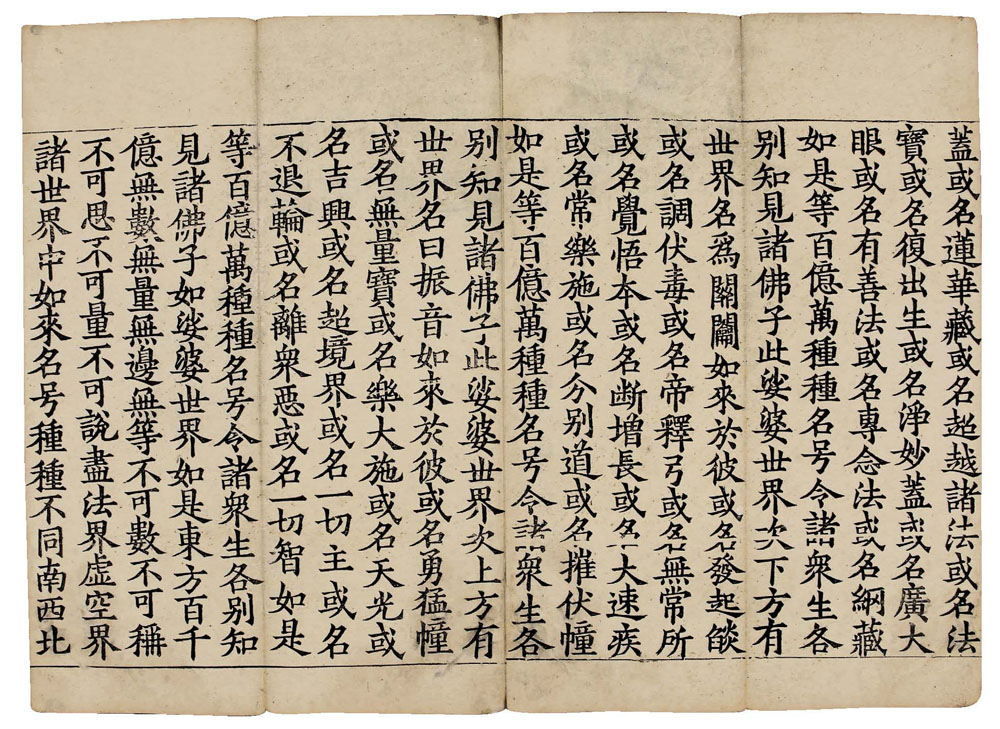 蓋或名蓮華藏或名超越諸法或名法
寶或名復出生或名淨妙蓋或名廣大
眼或名有善法或名專念法或名網藏
如是等百億萬種種名号令諸衆生各
別知見諸佛子此娑婆世界次下方有
世界名爲關闟如來於彼或名發起燄
或名調伏毒或名帝釋弓或名無常所
或名覺悟本或名断增長或名大速疾
或名常樂施或名分别道或名摧伏幢
如是等百億萬種種名号令諸衆生各
别知見諸佛子此娑婆世界次上方有
世界名曰振音如來於彼或名勇猛幢
或名無量寶或名樂大施或名天光或
名吉興或名超境界或名一切主或名
不退輪或名離衆惡或名一切智如是
等百億萬種種名号令諸衆生各别知
見諸佛子如娑婆世界如是東方百千
億無數無量無邊無等不可數不可稱
不可思不可量不可說盡法界虛空界
諸世界中如來名号種種不同南西北